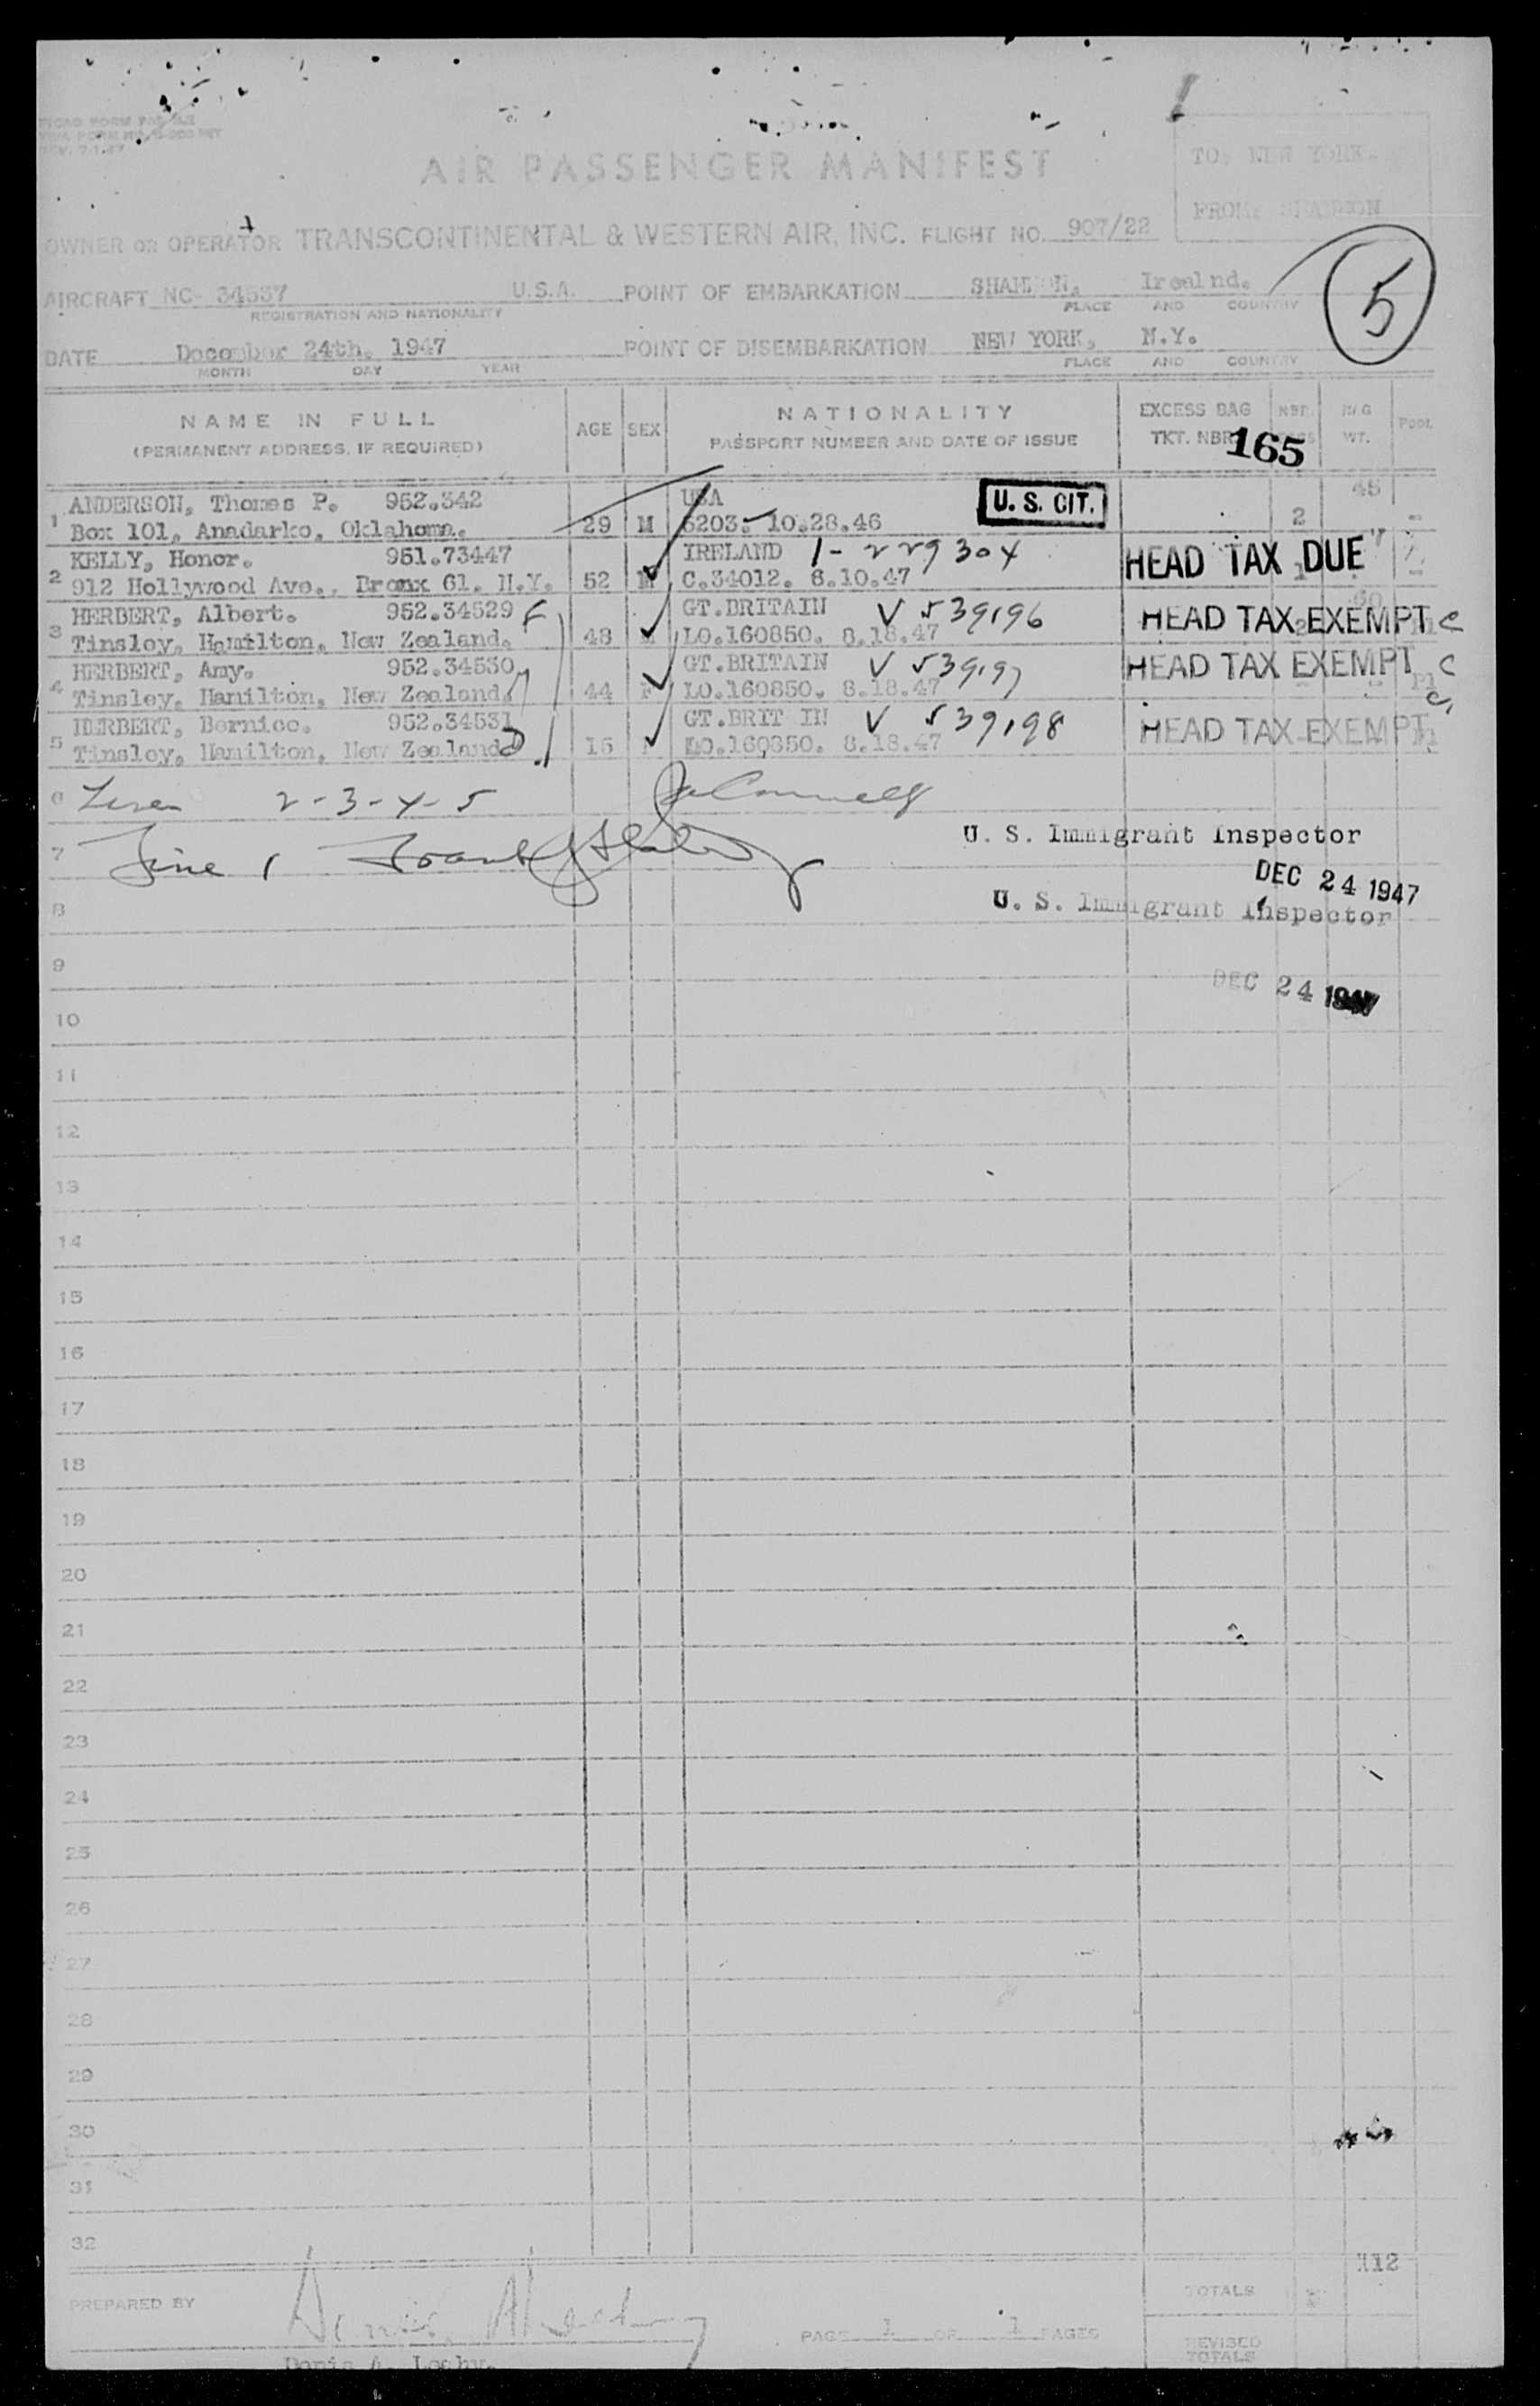 AIR PASSENGER MANIFEST
TO: NEW YORK.
FROM: SHANNON
OWNER OR OPERATOR TRANSCONTINENTAL & WESTERN AIR, INC. FLIGHT NO. 907/22
AIRCRAFT NC- 34537 U.S.A. POINT OF EMBARKATION SHANNON, Irealnd.
REGISTRATION AND NATIONALITY PLACE AND COUNTRY
5
DATE December 24th. 1947 POINT OF DISEMBARKATION NEW YORK, N.Y.
MONTH DAY YEAR PLACE AND COUNTRY
NAME IN FULL AGE SEX NATIONALITY EXCESS BAG
(PERMANENT ADDRESS, IF REQUIRED) PASSPORT NUMBER AND DATE OF ISSUE TKT. NBR. WT. POOL
165
1 ANDERSON, Thomas P. 952.342 USA U. S. CIT. 45
Box 101, Anadarko, Oklahoma. 29 M 5203. 10.28.46 2
2 KELLY, Honor. 951.73447 IRELAND 1-229304 HEAD TAX DUE
912 Hollywood Ave., Bronx 61. N.Y. 52 C.34012. 8.10.47
3 HERBERT, Albert. 952.34529 F GT.BRITAIN V 539196 HEAD TAX EXEMPT C
Tinsley, Hamilton, New Zealand. 48 M LO.160850. 8.18.47
4 HERBERT, Amy. 952.34530 GT.BRITAIN V 539197 HEAD TAX EXEMPT C
Tinsley, Hamilton, New Zealand. 44 F LO.160850. 8.18.47
5 HERBERT, Bernice. 952.34531 GT.BRIT IN V 539198 HEAD TAX EXEMPT
Tinsley, Hamilton, New Zealand. D 15 LO.160850. 8.18.47
6 Lines 2-3-4-5
7 Line 1 Frank
U. S. Immigrant Inspector
DEC 24 1947
8 U. S. Immigrant Inspector
9
DEC 24 1947
10
11
12
13
14
15
16
17
18
19
20
21
22
23
24
25
26
27
28
29
30
31
32
112
PREPARED BY TOTALS
PAGE 1 OF 1 PAGES
REVISED
TOTALS
Denis A. Leahy.